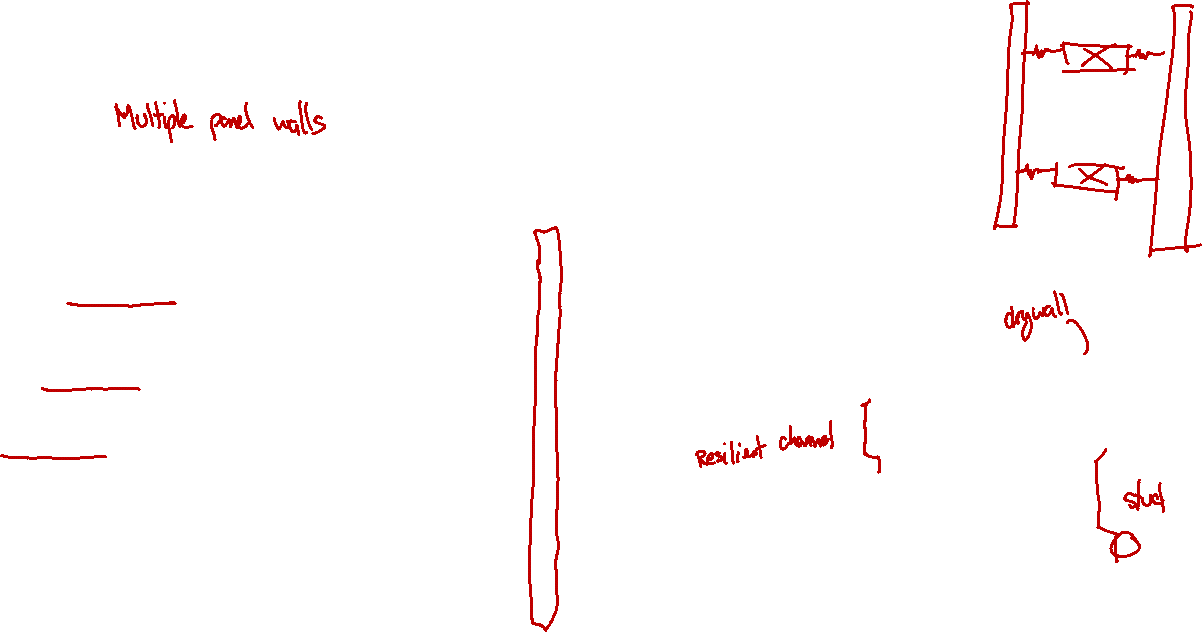 Multiple panel walls
drywall
Resilient channel
stud